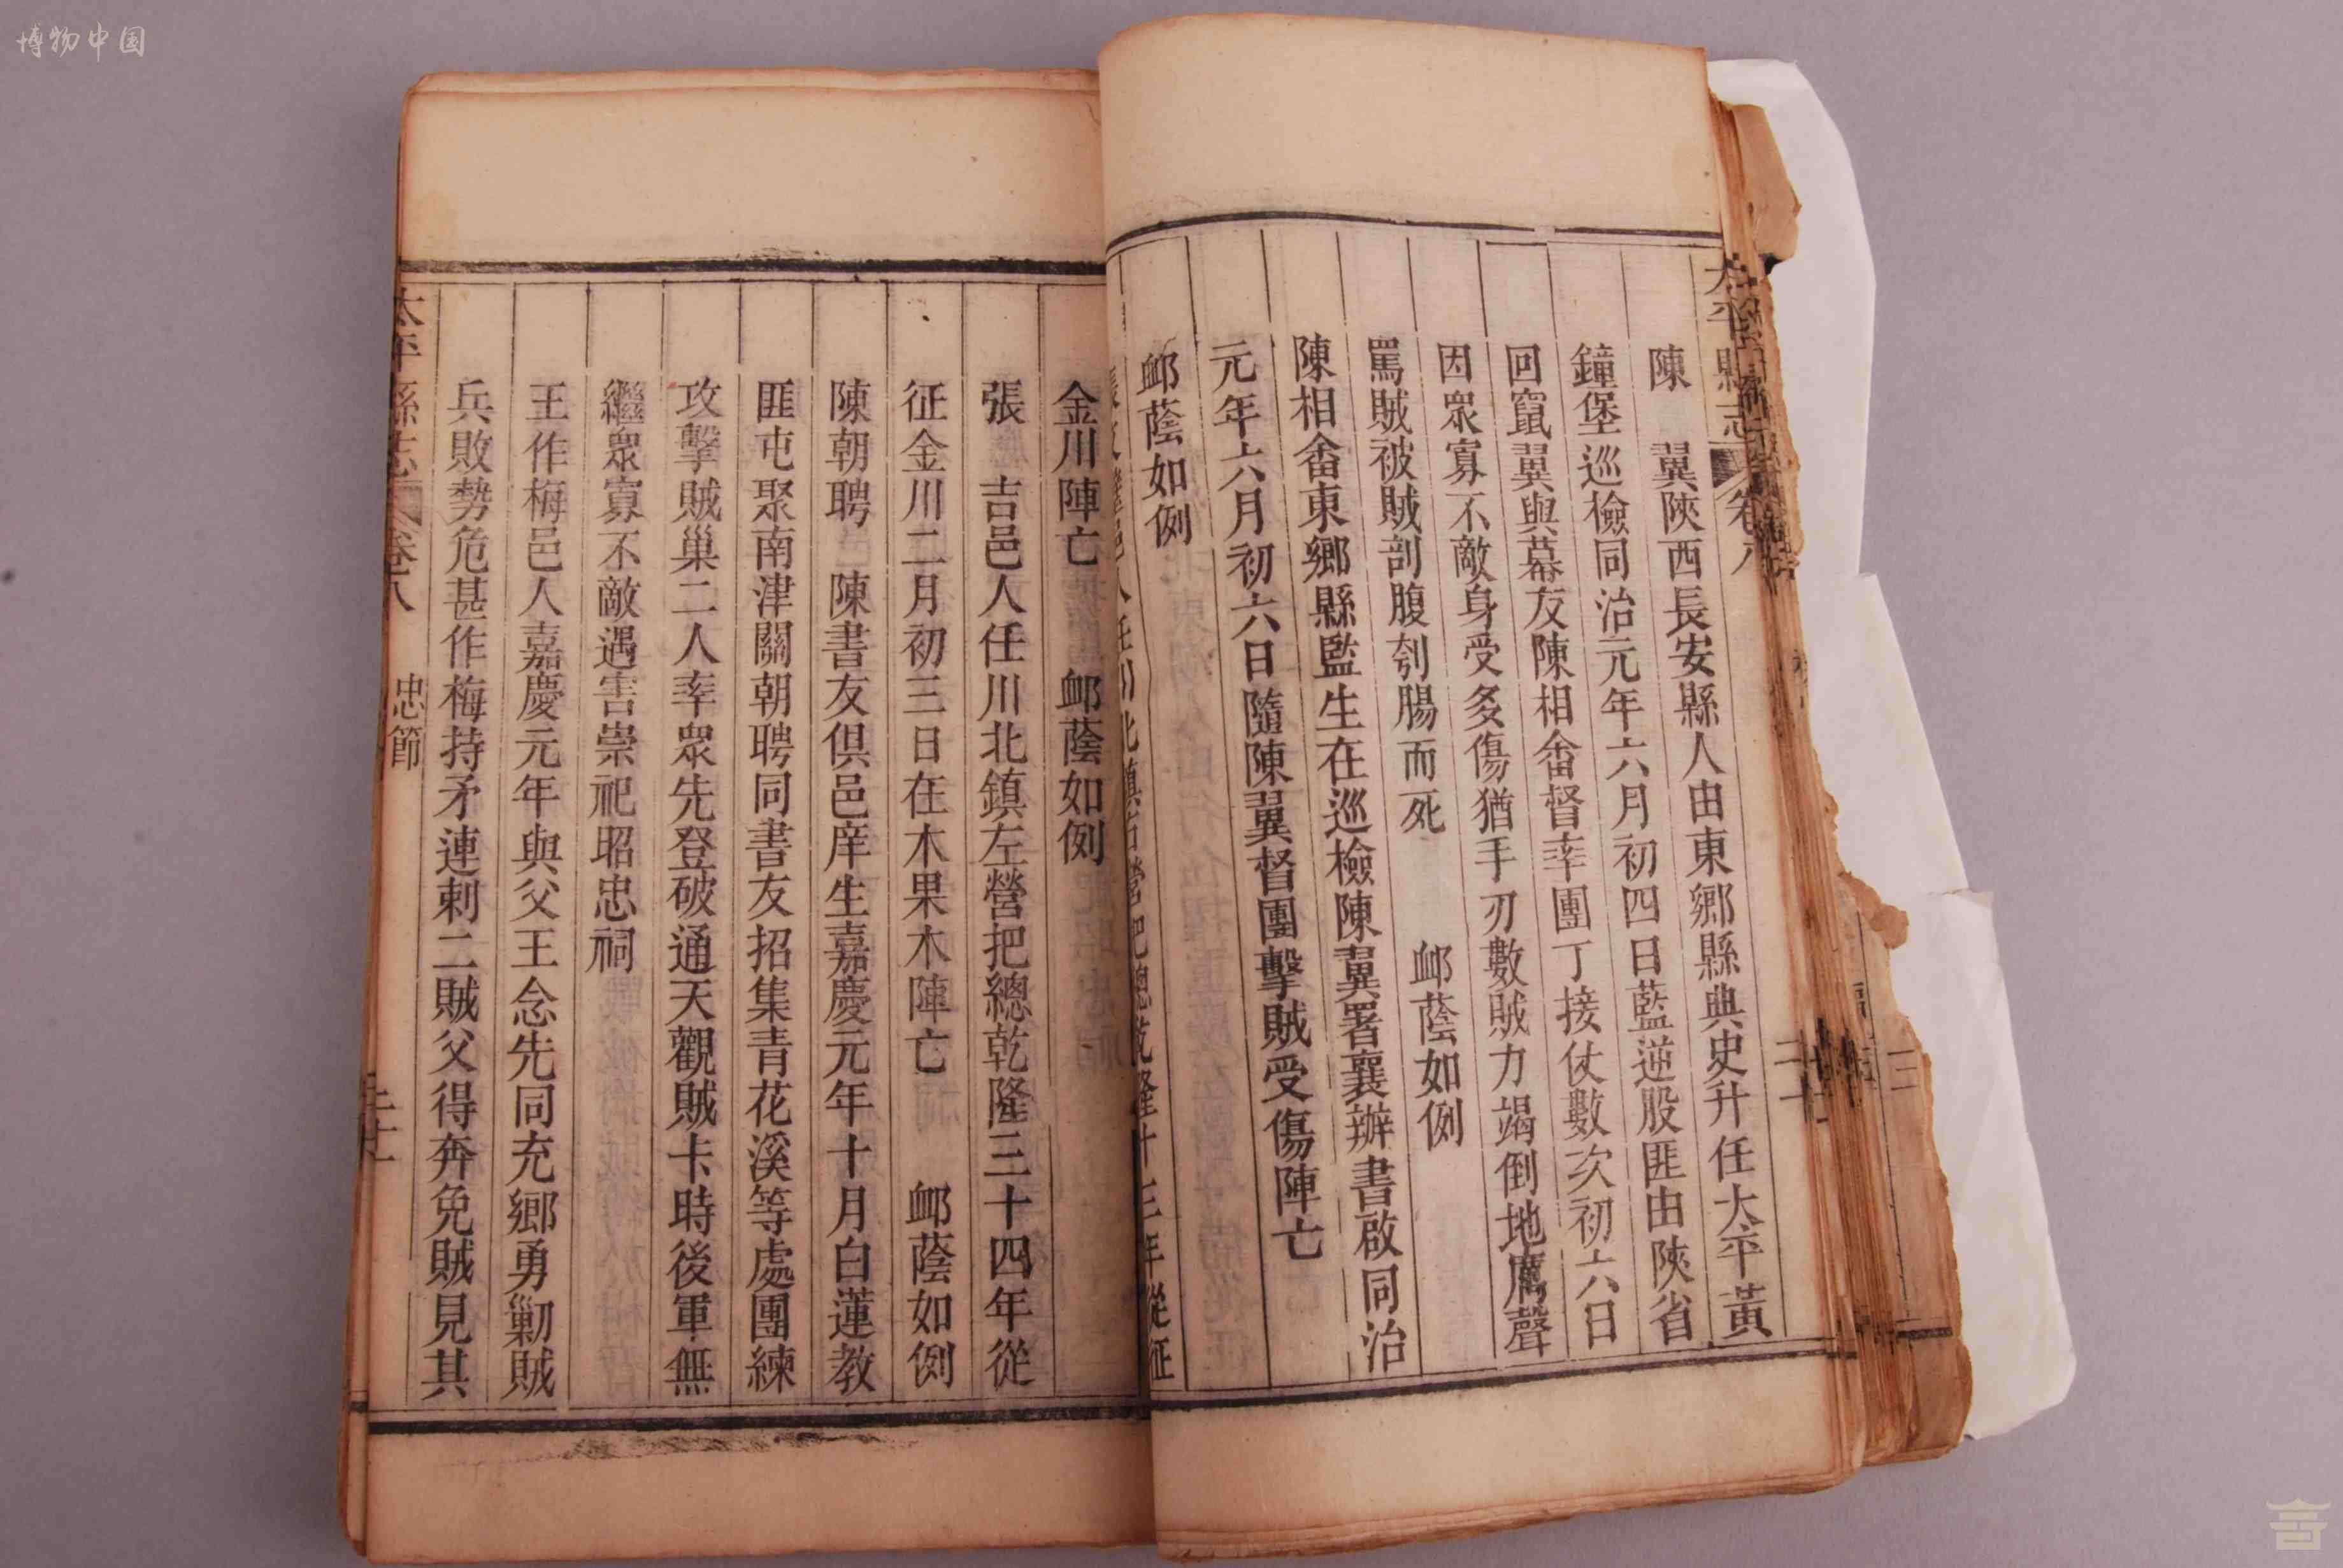 博物中国
太平縣志
卷八
陳　翼陝西長安縣人由東鄉縣典史升任太平黃
鐘堡巡檢同治元年六月初四日藍逆股匪由陝省
回竄翼與幕友陳相畬督率團丁接仗數次初六日
因眾寡不敵身受多傷猶手刃數賊力竭倒地厲聲
罵賊被賊剖腹刳腸而死　　卹蔭如例
陳相畬東鄉縣監生在巡檢陳翼署襄辦書啟同治
元年六月初六日隨陳翼督團擊賊受傷陣亡
卹蔭如例
人任川北鎮右營把總乾隆十三年從征
金川陣亡　　卹蔭如例
張　吉邑人任川北鎮左營把總乾隆三十四年從
征金川二月初三日在木果木陣亡　　卹蔭如例
陳朝聘　陳書友俱邑庠生嘉慶元年十月白蓮教
匪屯聚南津關朝聘同書友招集青花溪等處團練
攻擊賊巢二人率眾先登破通天觀賊卡時後軍無
繼眾寡不敵遇害崇祀昭忠祠
王作梅邑人嘉慶元年與父王念先同充鄉勇勦賊
兵敗勢危甚作梅持矛連刺二賊父得奔免賊見其
太平縣志
卷八
忠節